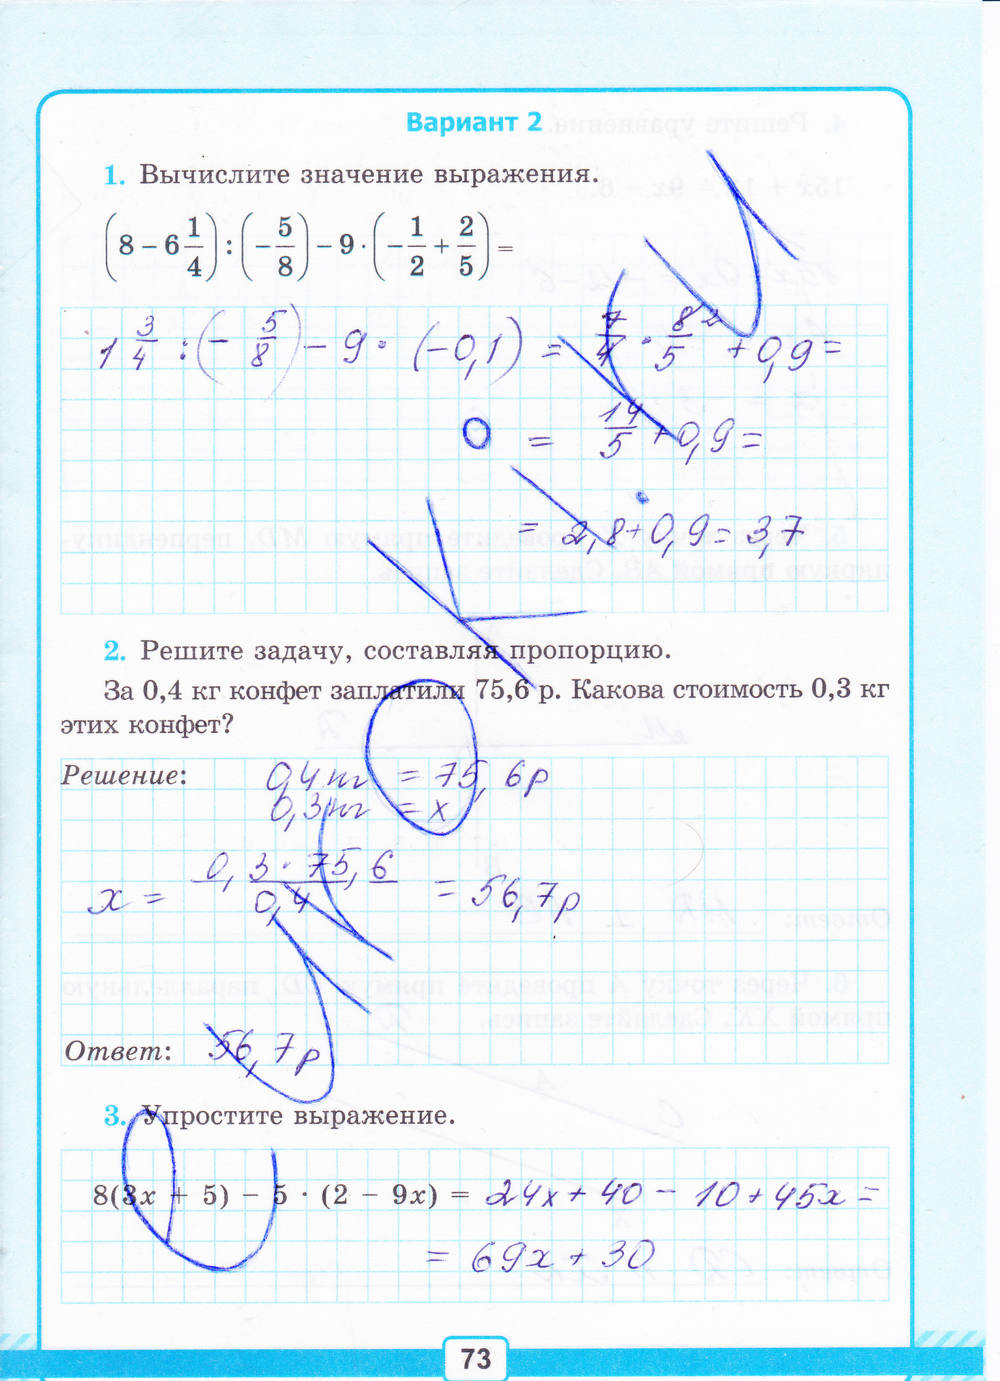 Вариант 2
1. Вычислите значение выражения.
(8 − 6 1/4) : (− 5/8) − 9 · (− 1/2 + 2/5) =
1 3/4 : (− 5/8) − 9 · (−0,1) = 7/4 · 8/5 + 0,9 =
= 14/5 + 0,9 =
= 2,8 + 0,9 = 3,7
2. Решите задачу, составляя пропорцию.
За 0,4 кг конфет заплатили 75,6 р. Какова стоимость 0,3 кг
этих конфет?
Решение:
0,4 кг = 75,6 р
0,3 кг = x
x = 0,3 · 75,6 / 0,4 = 56,7 р
Ответ: 56,7 р
3. Упростите выражение.
8(3x + 5) − 5 · (2 − 9x) = 24x + 40 − 10 + 45x =
= 69x + 30
73